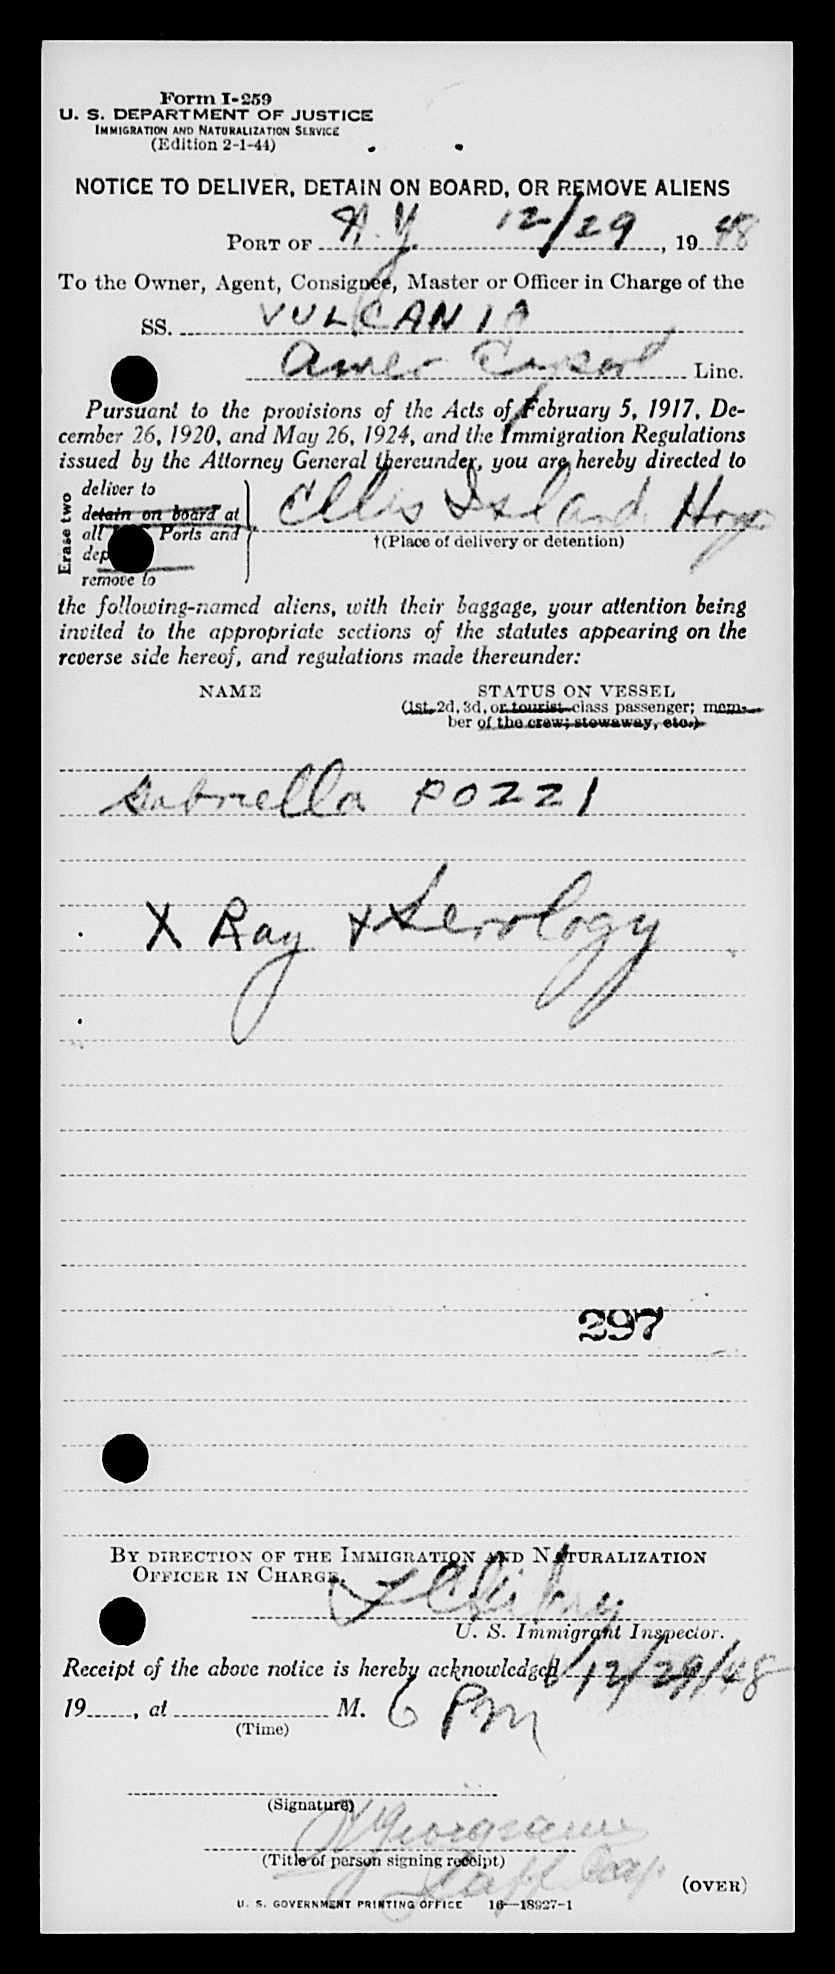 Form I-259
U. S. DEPARTMENT OF JUSTICE
IMMIGRATION AND NATURALIZATION SERVICE
(Edition 2-1-44)
NOTICE TO DELIVER, DETAIN ON BOARD, OR REMOVE ALIENS
PORT OF N.Y. 12/29, 1948
To the Owner, Agent, Consignee, Master or Officer in Charge of the
SS. VULCANIA
Amer Export Line.
Pursuant to the provisions of the Acts of February 5, 1917, De-
cember 26, 1920, and May 26, 1924, and the Immigration Regulations
issued by the Attorney General thereunder, you are hereby directed to
Erase two
deliver to
detain on board at
all Ports and
remove to
Ellis Island Hosp
†(Place of delivery or detention)
the following-named aliens, with their baggage, your attention being
invited to the appropriate sections of the statutes appearing on the
reverse side hereof, and regulations made thereunder:
NAME STATUS ON VESSEL
(1st, 2d, 3d, or tourist class passenger; mem-
ber of the crew; stowaway, etc.)
Gabriella POZZI
X Ray + Serology
297
BY DIRECTION OF THE IMMIGRATION AND NATURALIZATION
OFFICER IN CHARGE.
U. S. Immigrant Inspector.
Receipt of the above notice is hereby acknowledged 12/29/48
19____, at ____ M. 6 PM
(Time)
(Signature)
(Title of person signing receipt)
(OVER)
U. S. GOVERNMENT PRINTING OFFICE 16—18927-1